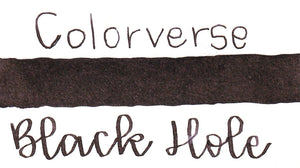 Colorverse
Black Hole